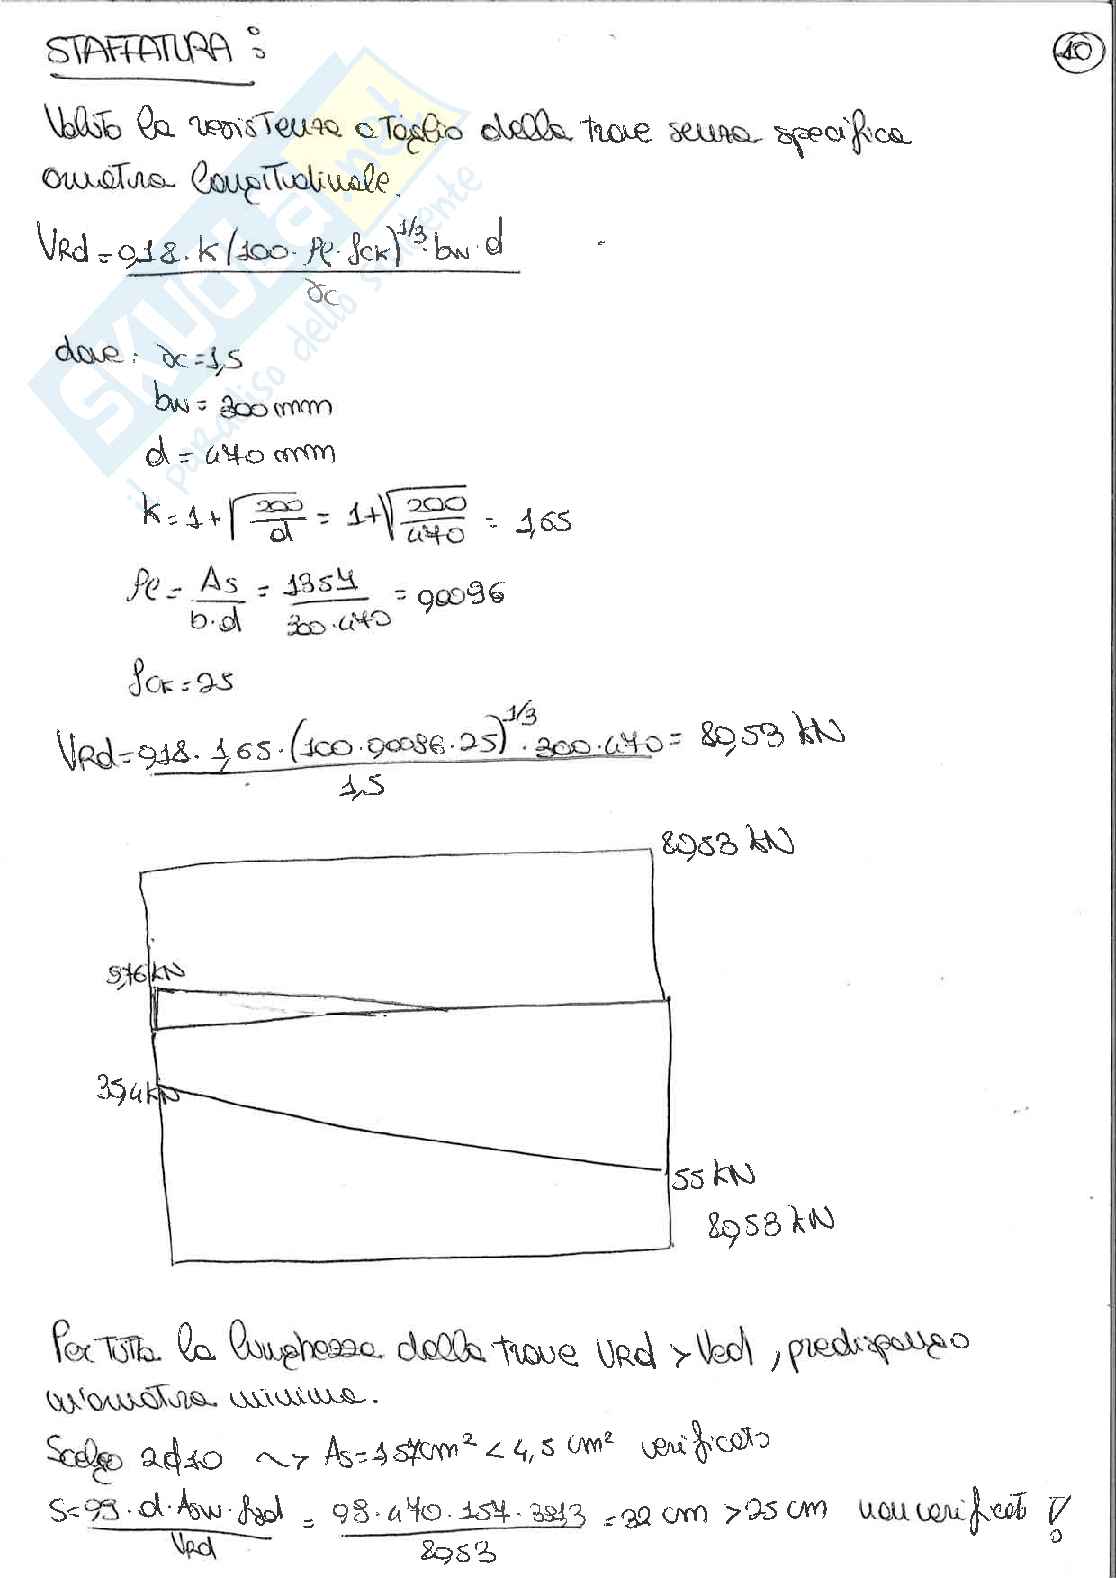 STAFFATURA:
10
Valuto la resistenza a taglio della trave senza specifica
armatura longitudinale.
VRd = 0,18 · k (100 · ρl · fck)^1/3 · bw · d
γc
dove: γc = 1,5
bw = 300 mm
d = 470 mm
k = 1 + √200/d = 1 + √200/470 = 1,65
ρl = As/b·d = 1357/300·470 = 0,0096
fck = 25
VRd = 0,18 · 1,65 · (100 · 0,0096 · 25)^1/3 · 300 · 470 = 80,53 kN
1,5
80,53 kN
9,76 kN
35,4 kN
55 kN
80,53 kN
Per tutta la lunghezza della trave VRd > Ved, predispongo
un'armatura minima.
Scelgo 2ϕ10 ~> As = 157 cm² < 4,5 cm² verificato
S = 0,9 · d · Asw · fyd / VRd = 0,9 · 470 · 157 · 391,3 / 80,53 = 32 cm > 25 cm non verificato !
SKUOLA.net
il paradiso dello studente